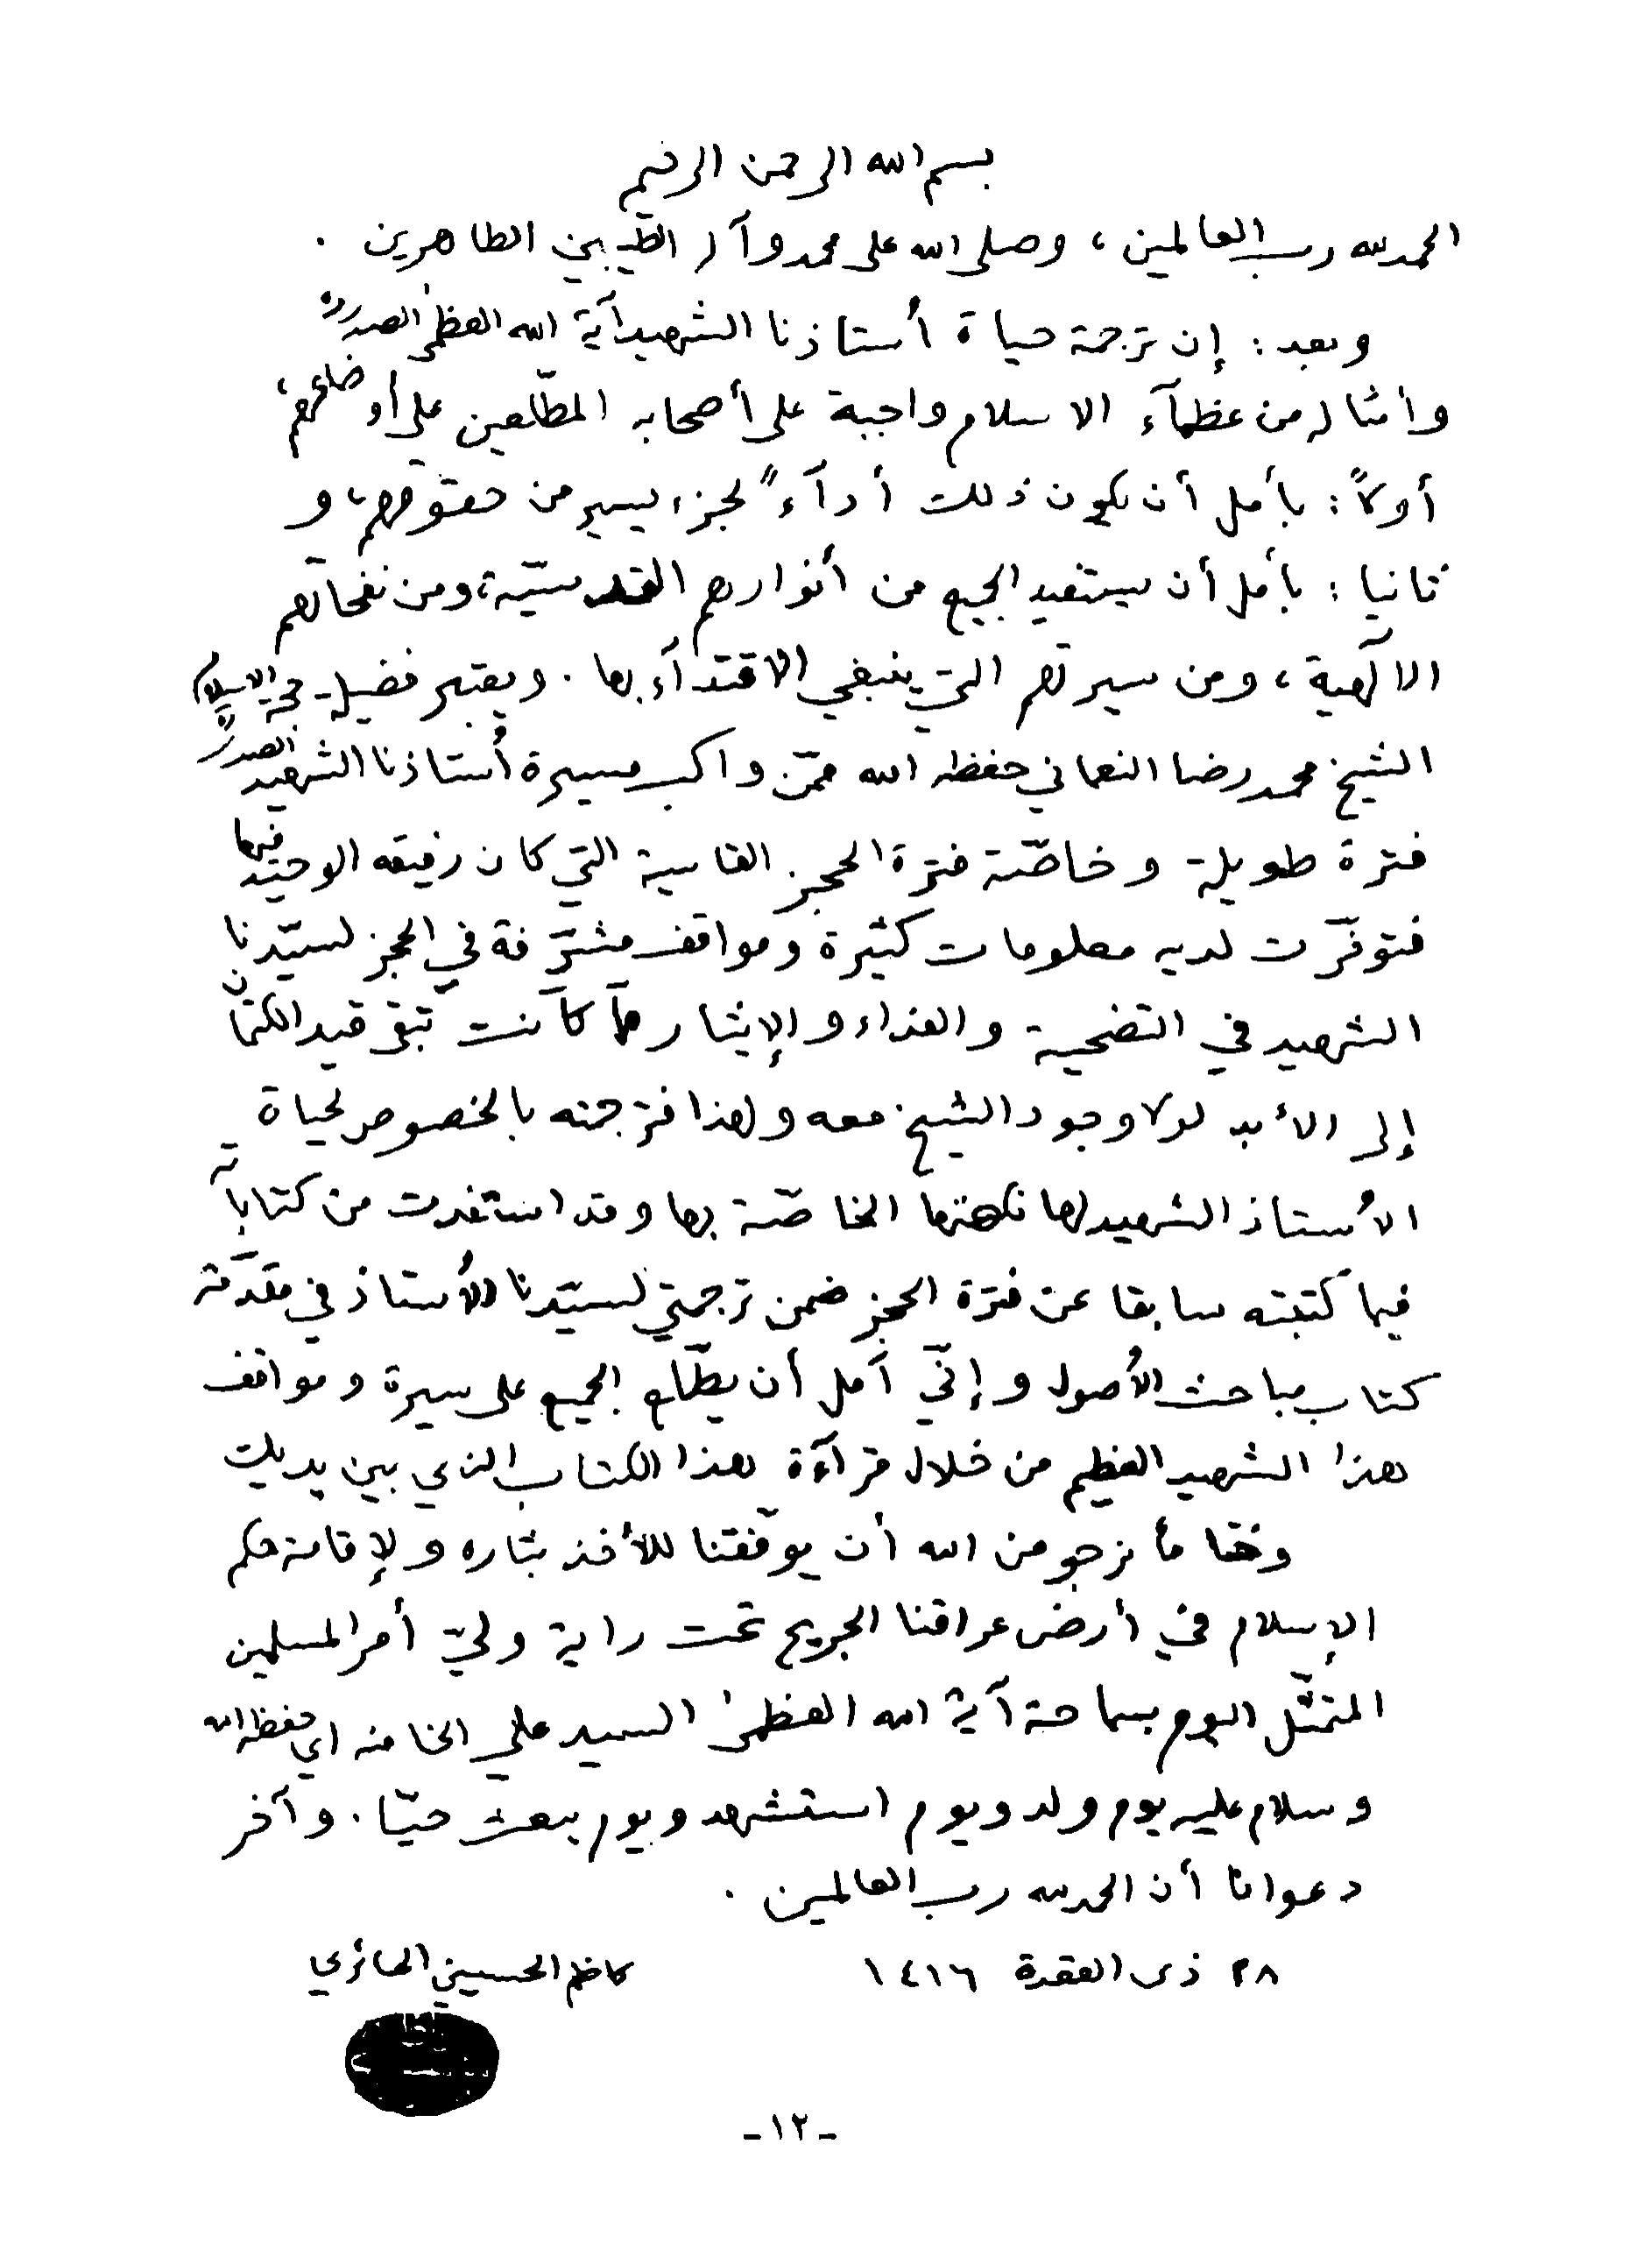 بسم الله الرحمن الرحيم
الحمد لله رب العالمين ، وصلى الله على محمد وآله الطيّبين الطاهرين .
وبعد : إن ترجمة حياة أُستاذنا الشهيد آية الله العظمى الصدر ره
وامثاله من عظمآء الاسلام واجبة على أصحابه المطّلعين على أوضاعهم ،
أولاً : بأمل أن يكون ذلك أدآءً لجزء يسير من حقوقهم ، و
ثانيا : بأمل أن يستفيد الجميع من أنوارهم القدسيّة ، ومن نفحاتهم
الالهية ، ومن سيرتهم التي ينبغي الاقتدآء بها . ويعتبر فضيلة حجة الاسلام
الشيخ محمد رضا النعماني حفظه الله ممّن واكب مسيرة أُستاذنا الشهيد الصدر
فترة طويلة وخاصّة فترة الحجز القاسية التي كان رفيقه الوحيد فيها
فتوفّرت لديه معلومات كثيرة ومواقف مشرّفة في الحجز لسيّدنا
الشهيد في التضحية والفداء والإيثار ممّا كانت تبقى قيد الكتمان
إلى الأبد لولا وجود الشيخ معه ولهذا فترجمته بالخصوص لحياة
الأُستاذ الشهيد لها نكهتها الخاصّة بها وقد استفدت من كتاباته
فيما كتبته سابقا عن فترة الحجز ضمن ترجمتي لسيّدنا الأُستاذ في مقدّمة
كتاب مباحث الأُصول وإنّي آمل أن يطّلع الجميع على سيرة ومواقف
هذا الشهيد العظيم من خلال قرآءة هذا الكتاب الذي بين يديك
وختاماً نرجو من الله أن يوفّقنا للأخذ بثاره ولإقامة حكم
الإسلام في أرض عراقنا الجريح تحت راية وليّ أمر المسلمين
المتمثّل اليوم بسماحة آية الله العظمى السيد علي الخامنه اي حفظه الله
وسلام عليه يوم ولد ويوم استشهد ويوم يبعث حيّا . وآخر
دعوانا أن الحمد لله رب العالمين .
٢٨ ذى القعدة ١٤١٦ كاظم الحسيني الحائري
-١٢-